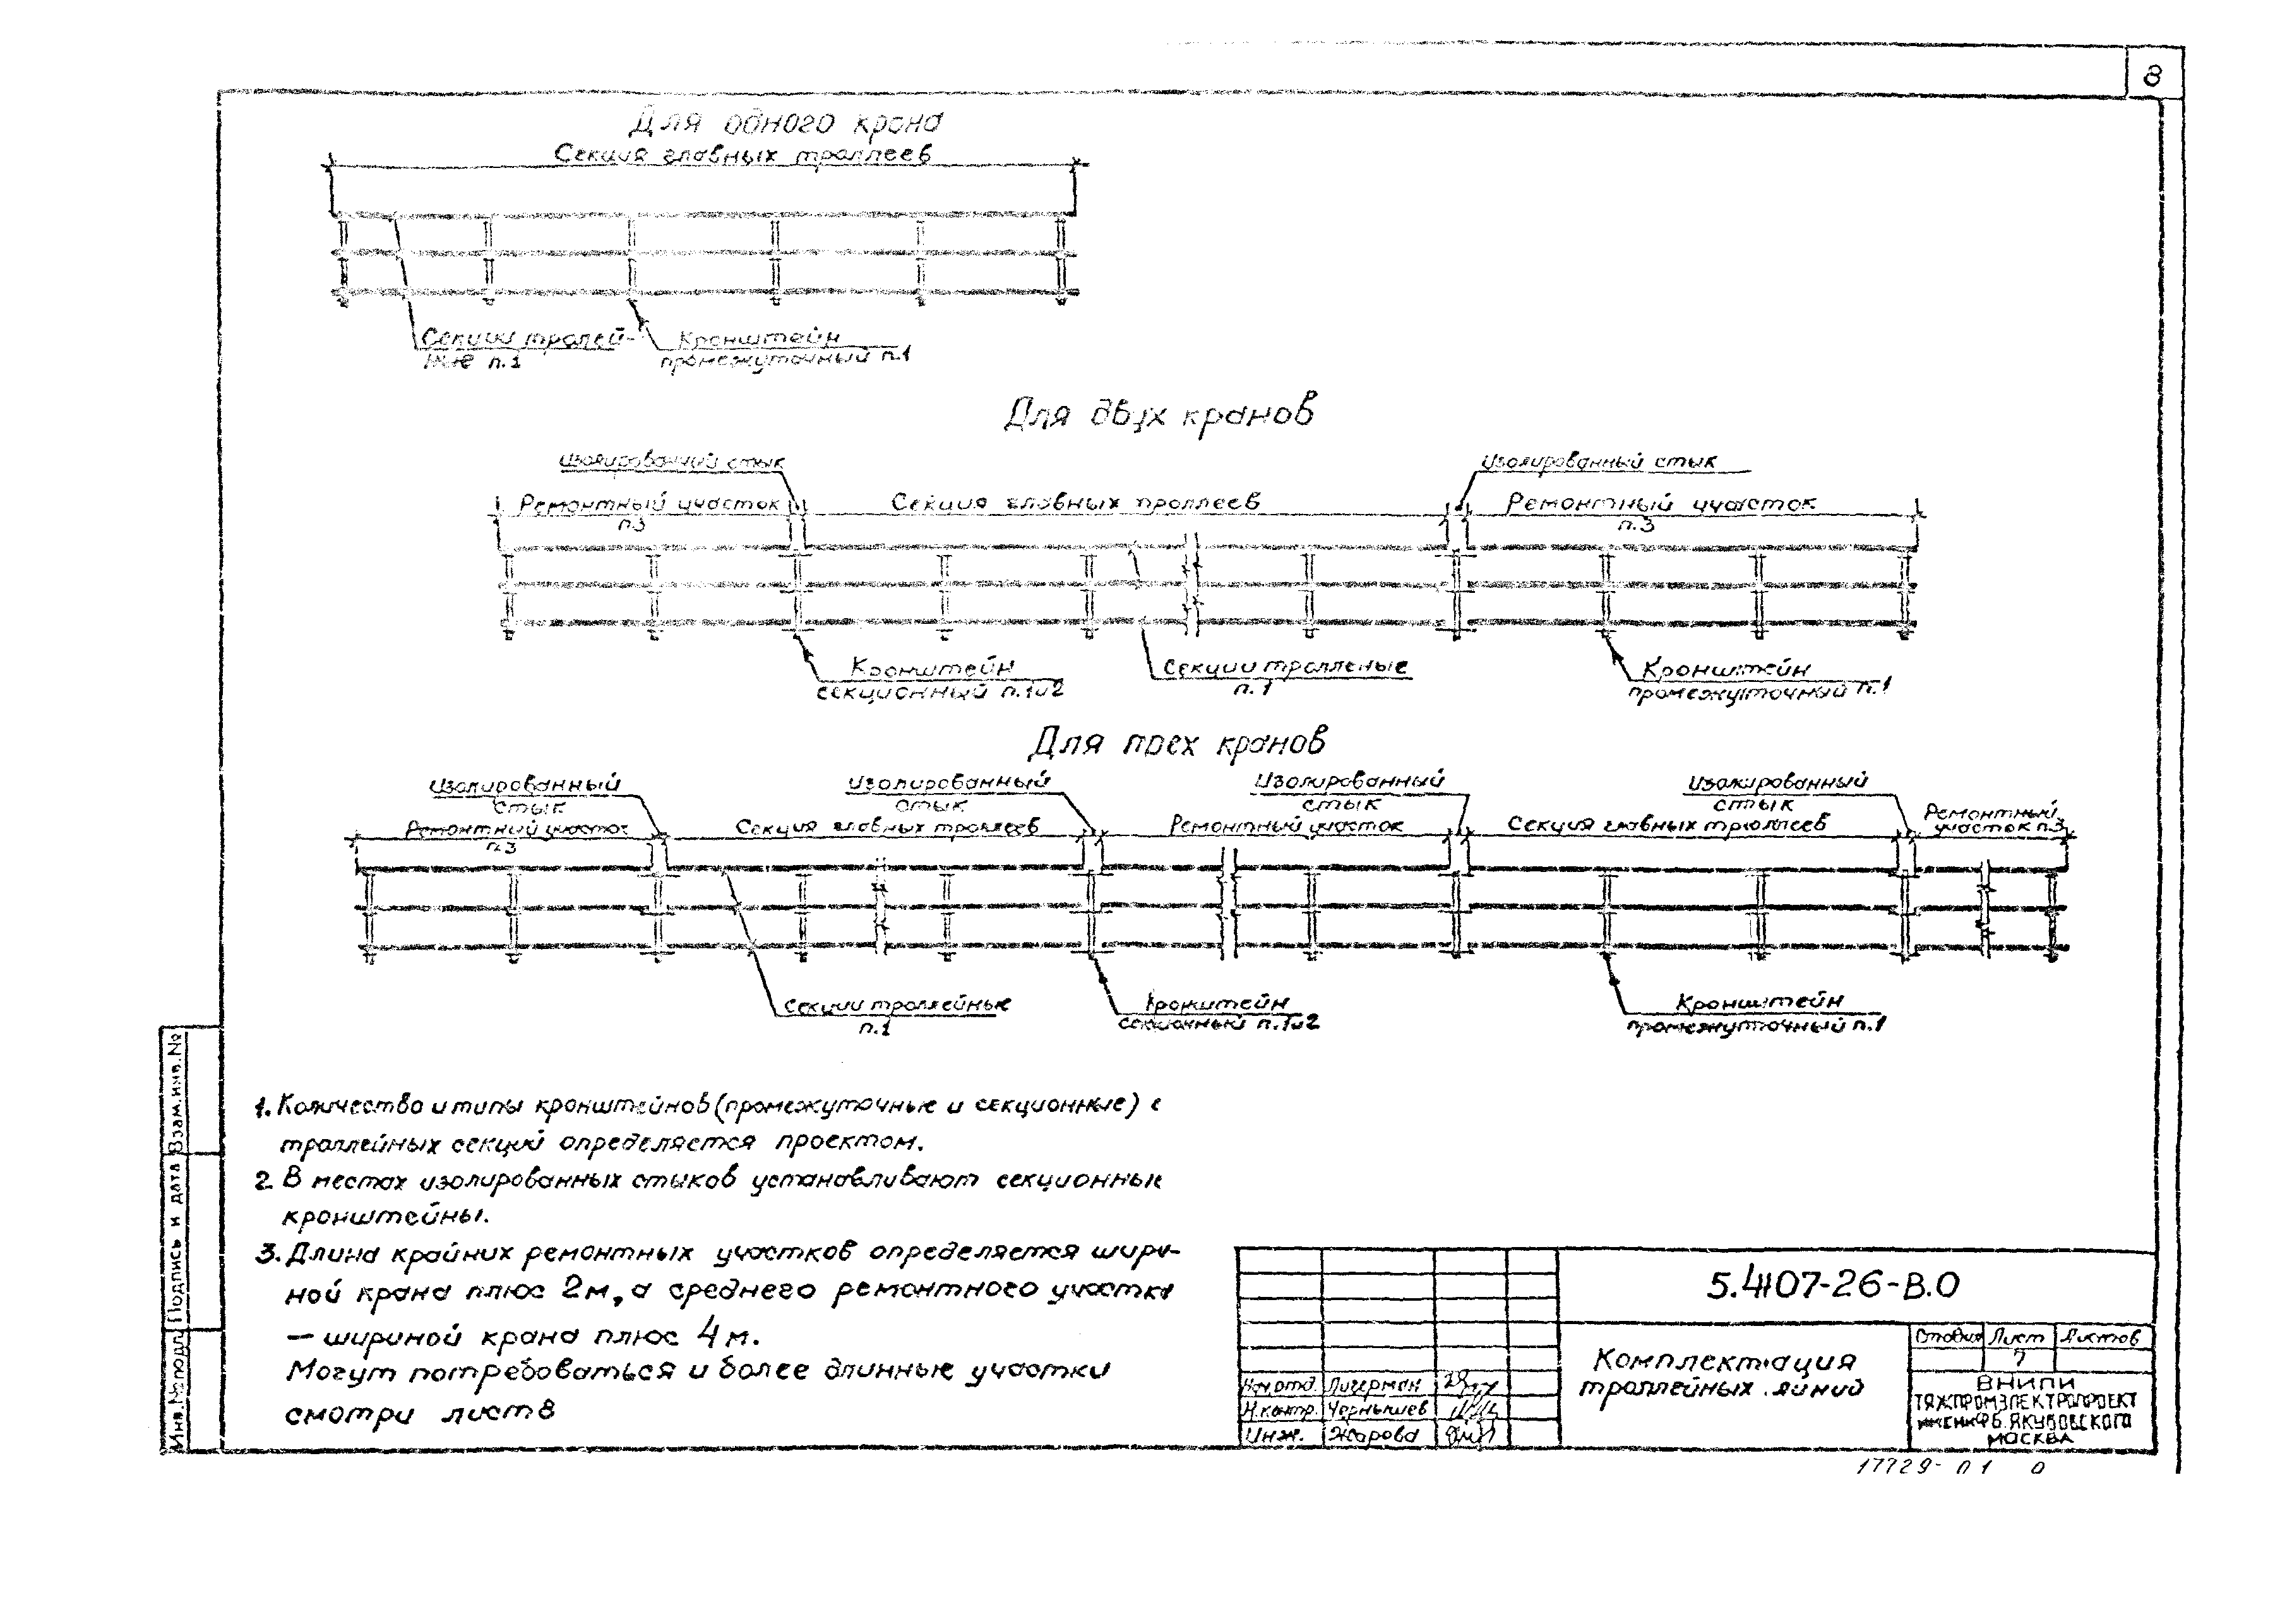 8
Для одного крана
Секция главных троллеев
Секции тролей-
ные п.1
Кронштейн
промежуточный п.1
Для двух кранов
Изолированный стык
Изолированный стык
Ремонтный участок
п.3
Секция главных троллеев
Ремонтный участок
п.3
Кронштейн
секционный п.1и2
Секции тролленые
п.1
Кронштейн
промежуточный п.1
Для трех кранов
Изолированный
стык
Изолированный
стык
Изолированный
стык
Изолированный
стык
Ремонтный участок
п.3
Секция главных троллеев
Ремонтный участок
Секция главных троллеев
Ремонтный
участок п.3
Секции троллейные
п.1
Кронштейн
секционный п.1и2
Кронштейн
промежуточный п.1
1. Количество и типы кронштейнов (промежуточные и секционные) с
троллейных секций определяется проектом.
2 В местах изолированных стыков устанавливают секционные
кронштейны.
3. Длина крайних ремонтных участков определяется шири-
ной крана плюс 2м, а среднего ремонтного участка
— шириной крана плюс 4м.
Могут потребоваться и более длинные участки
смотри лист 8
Взам.инв.№
Подпись и дата
Инв.№ подл.
5.4107-26-В.0
Комплектация
троллейных линий
Стадия Лист Листов
7
Нач.отд. Лигерман
Н.контр. Чернышев
Инж. Жарова
ВНИПИ
ТЯЖПРОМЭЛЕКТРОПРОЕКТ
имени Ф.Б.ЯКУБОВСКОГО
МОСКВА
17729-